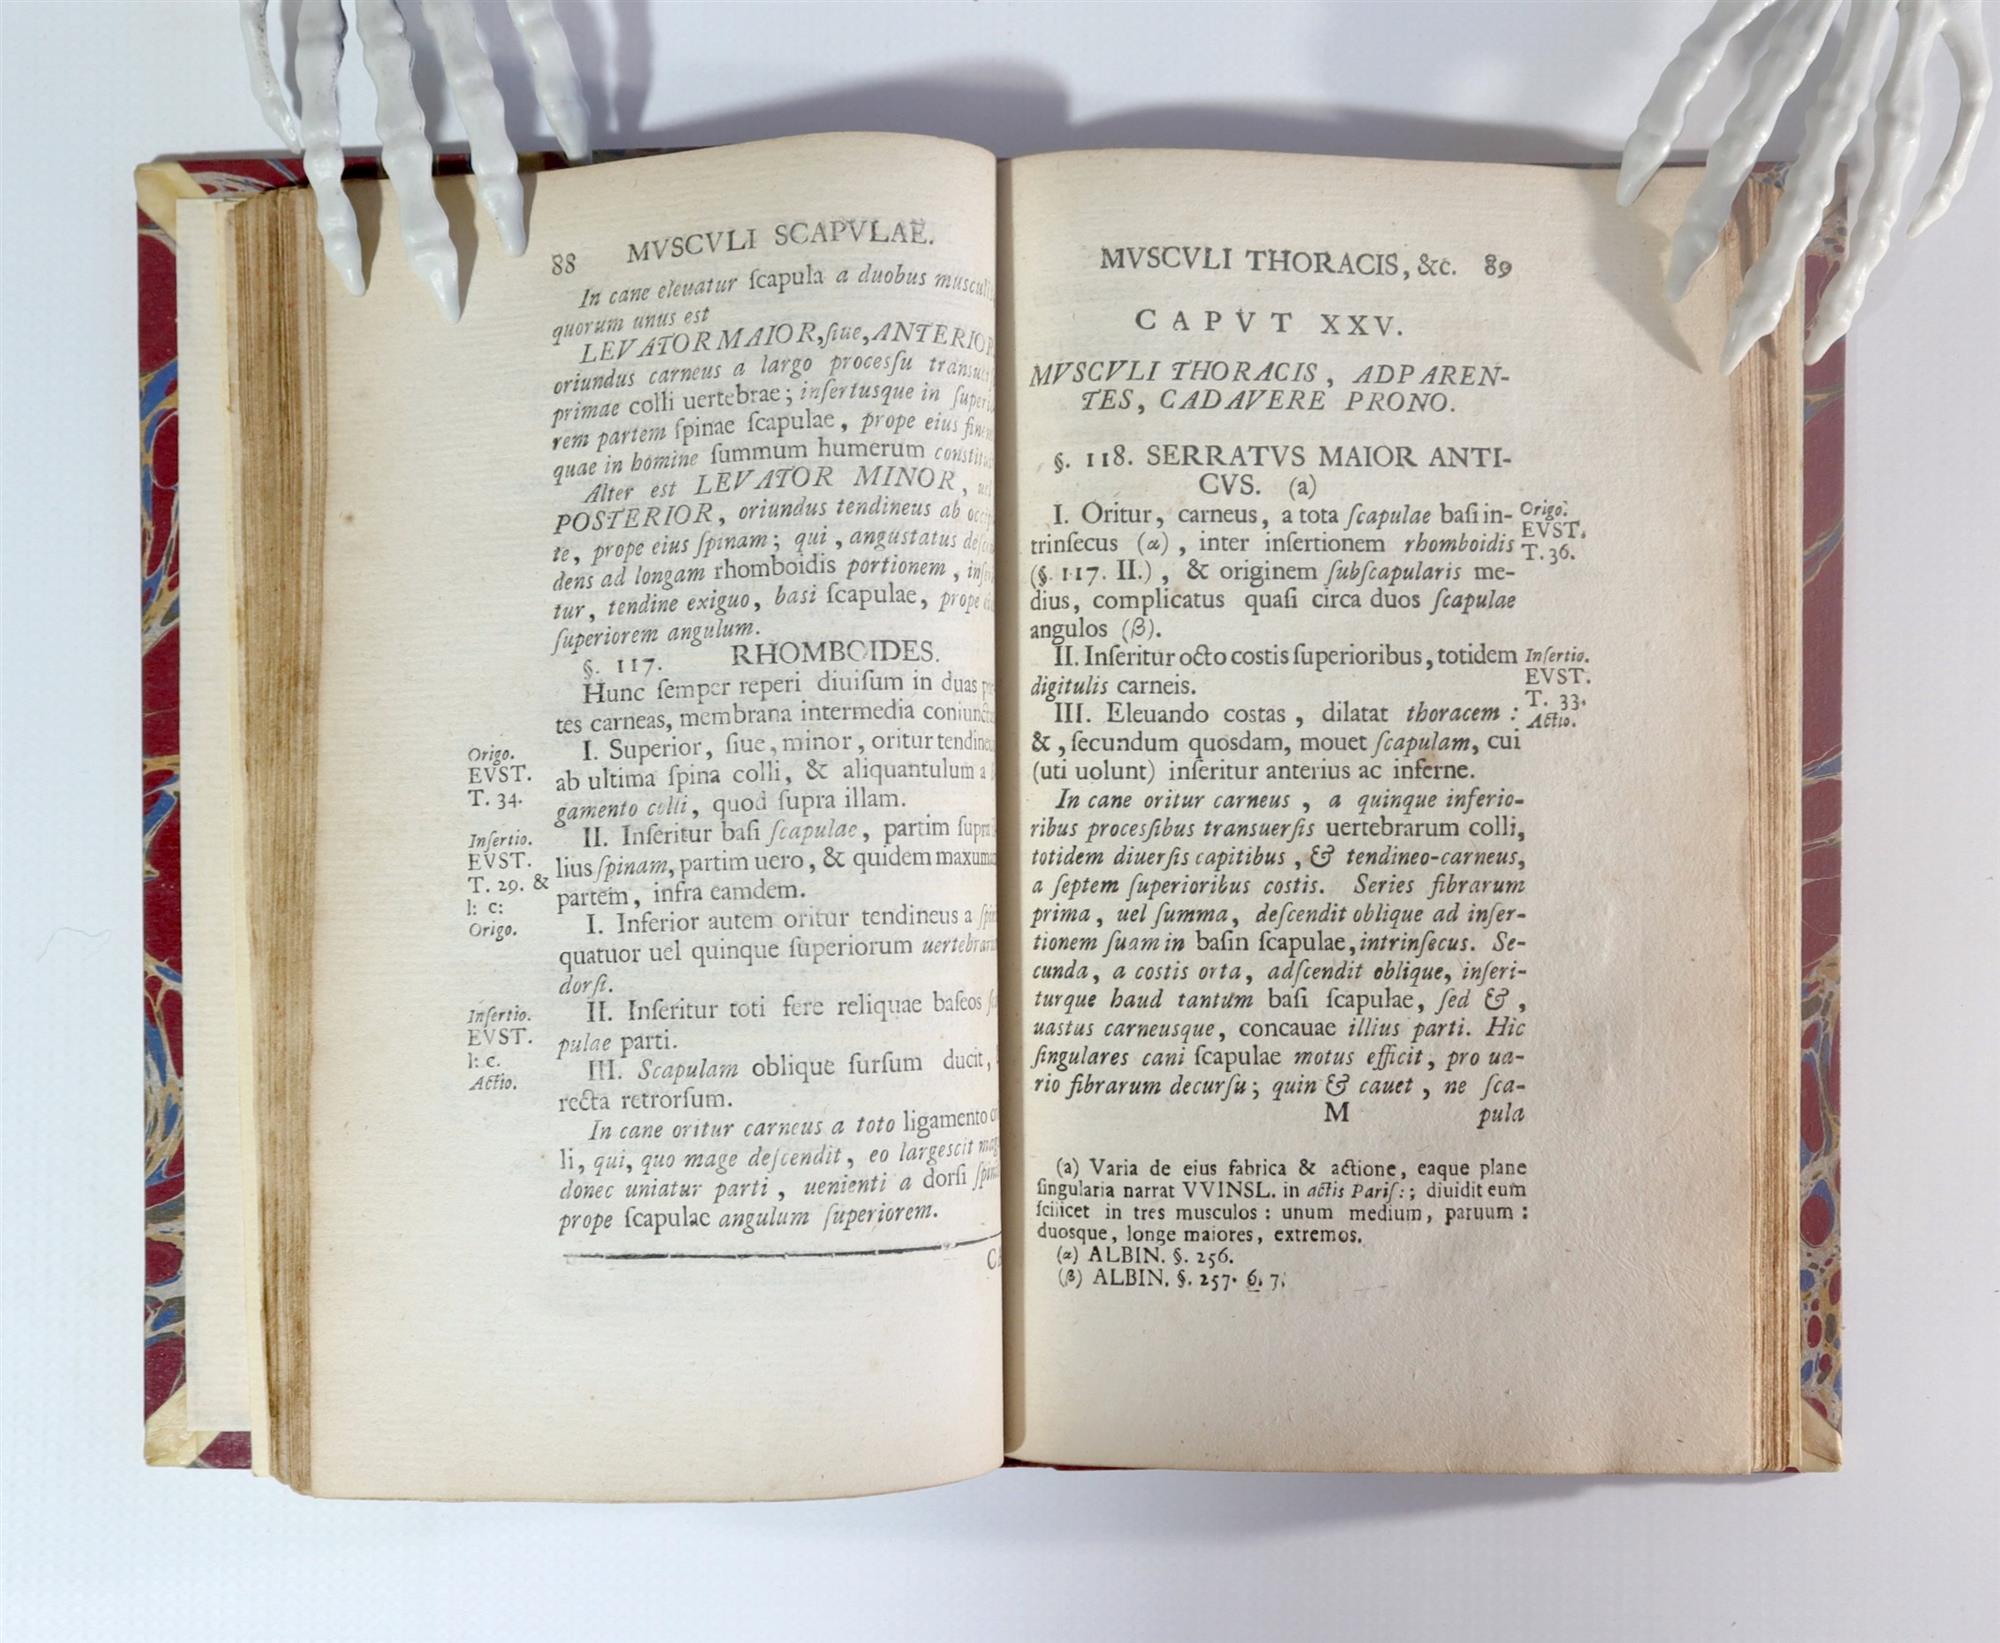 88 MVSCVLI SCAPVLAE.
In cane eleuatur ſcapula a duobus
quorum unus est
LEVATOR MAIOR, ſiue, ANTERIOR
oriundus carneus a largo proceſſu
primae colli uertebrae; inſertusque in
rem partem ſpinae ſcapulae, prope eius
quae in homine ſummum humerum
Alter est LEVATOR MINOR,
POSTERIOR, oriundus tendineus ab
te, prope eius ſpinam; qui, angustatus
dens ad longam rhomboidis portionem,
tur, tendine exiguo, basi ſcapulae, prope
ſuperiorem angulum.
§. 117. RHOMBOIDES.
Hunc ſemper reperi diuiſum in duas
tes carneas, membrana intermedia
I. Superior, ſiue, minor, oritur
ab ultima ſpina colli, & aliquantulum a
gamento colli, quod ſupra illam.
II. Inſeritur baſi ſcapulae, partim
lius ſpinam, partim uero, & quidem
partem, infra eamdem.
I. Inferior autem oritur tendineus a
quatuor uel quinque ſuperiorum
dorſi.
II. Inſeritur toti fere reliquae baſeos
pulae parti.
III. Scapulam oblique ſurſum ducit,
recta retrorſum.
In cane oritur carneus a toto ligamento
li, qui, quo mage deſcendit, eo largescit
donec uniatur parti, uenienti a dorſi
prope ſcapulae angulum ſuperiorem.
Origo.
EVST.
T. 34.
Inſertio.
EVST.
T. 29. &
l: c:
Origo.
Inſertio.
EVST.
l: c.
Actio.
MVSCVLI THORACIS, &c. 89
CAPVT XXV.
MVSCVLI THORACIS, ADPAREN-
TES, CADAVERE PRONO.
§. 118. SERRATVS MAIOR ANTI-
CVS. (a)
I. Oritur, carneus, a tota ſcapulae baſi in-
trinſecus (α), inter inſertionem rhomboidis
(§. 117. II.), & originem ſubſcapularis me-
dius, complicatus quaſi circa duos ſcapulae
angulos (β).
II. Inſeritur octo costis ſuperioribus, totidem
digitulis carneis.
III. Eleuando costas, dilatat thoracem:
&, ſecundum quosdam, mouet ſcapulam, cui
(uti uolunt) inſeritur anterius ac inferne.
In cane oritur carneus, a quinque inferio-
ribus proceſſibus transuerſis uertebrarum colli,
totidem diuerſis capitibus, & tendineo-carneus,
a ſeptem ſuperioribus costis. Series fibrarum
prima, uel ſumma, deſcendit oblique ad inſer-
tionem ſuam in baſin ſcapulae, intrinſecus. Se-
cunda, a costis orta, adſcendit oblique, inſeri-
turque haud tantum baſi ſcapulae, ſed &,
uastus carneusque, concauae illius parti. Hic
ſingulares cani ſcapulae motus efficit, pro ua-
rio fibrarum decurſu; quin & cauet, ne ſca-
M pula
Origo.
EVST.
T. 36.
Inſertio.
EVST.
T. 33.
Actio.
(a) Varia de eius fabrica & actione, eaque plane
ſingularia narrat VVINSL. in actis Pariſ:; diuidit eum
ſcilicet in tres musculos: unum medium, paruum:
duosque, longe maiores, extremos.
(α) ALBIN. §. 256.
(β) ALBIN. §. 257. 6. 7.